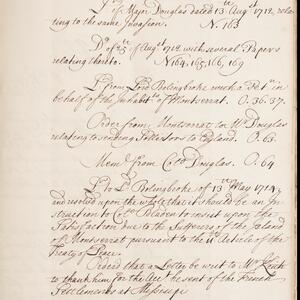 Lr of Major Douglas dated 13th Augt 1712, rela-
ting to the same Invasion. N. 163
Do of 25th of Augt 1712 with several Papers
relating thereto. N 164, 165, 166, 169
Lr from Lord Bolingbroke with a Petn in
behalf of the Inhabits of Montserrat. O. 36. 37.
Order from Montserrat to Mr Douglas
relating to sending Pellestors to England. O. 63.
Mem from Coll Douglas. O. 64
Lr to Ld Bolingbroke of 13th May 1714,
and resolved upon the whole that it should be an In-
struction to Coll Bladen to insist upon the
Satisfaction due to the Sufferers of the Island
of Montserrat pursuant to the 11th Article of the
Treaty of Peace.
Ordered that a Letter be writ to Mr Keith
to thank him for the Acct he sent of the French
Settlements at Messasipi